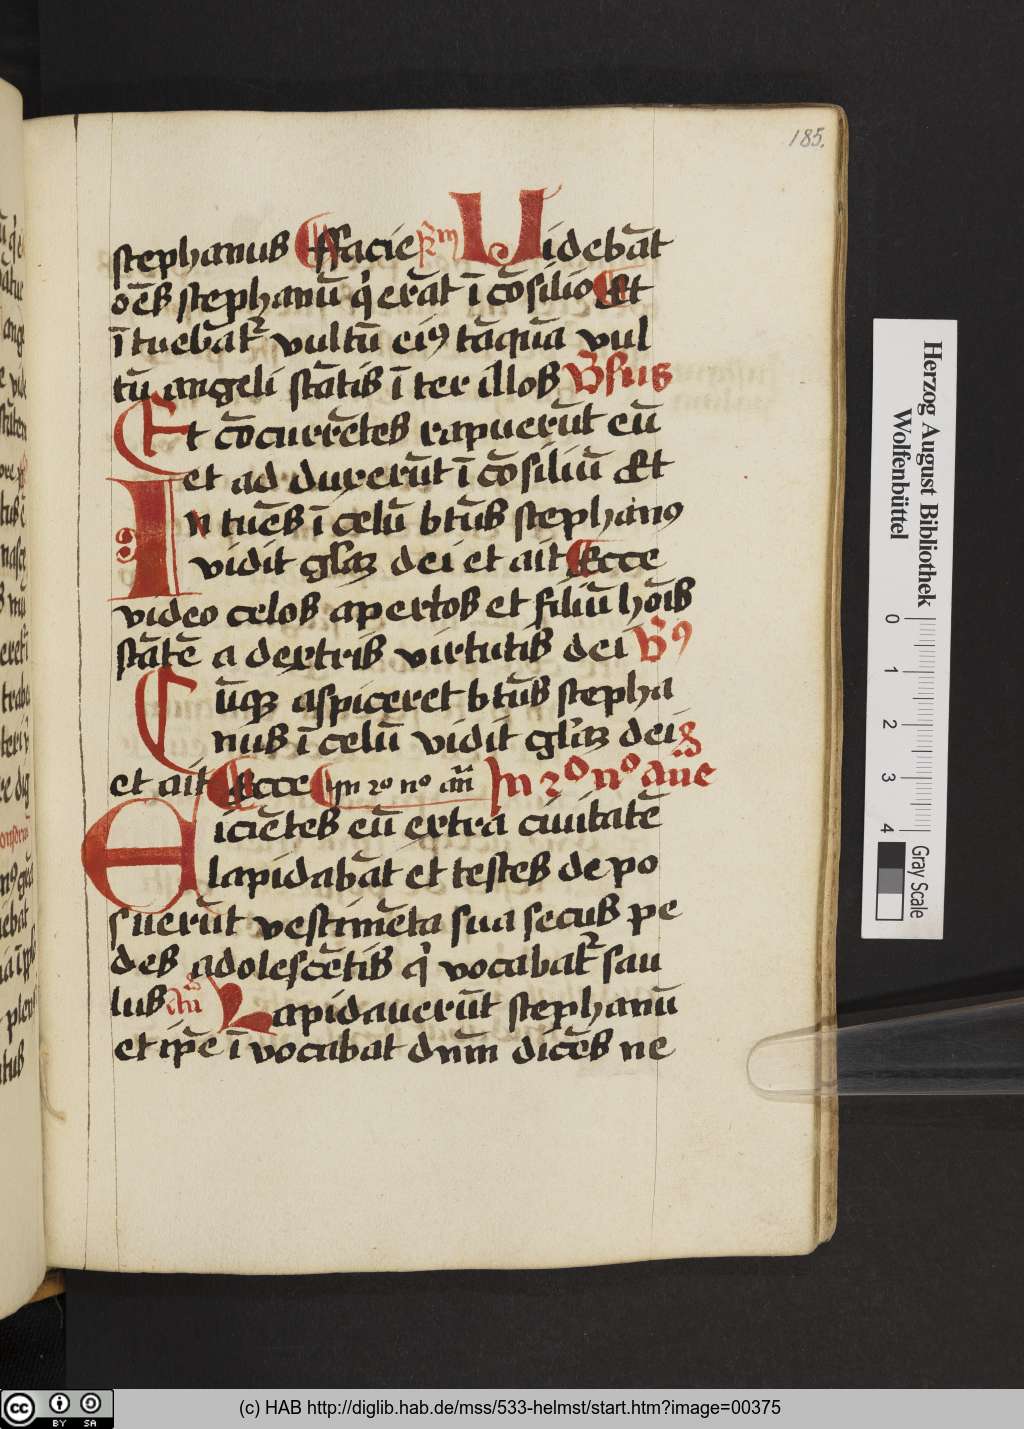 185.
stephanus Effacie Videbāt
oēs stephanū q̇ erāt ī cōsilio Et
ītuebāt᷑ vultū eiꝰ tāquā vul
tū angeli stātis īter illos Vsus
Et cōcurrētes rapuerūt eū
et adduxerūt ī cōsiliū Et
Intuēs ī celū btūs stephanꝰ
vidit gl̄aꝫ dei et ait Ecce
video celos apertos et filiū hōis
stātē a dextris virtutis dei Vꝰ
Cūqꝫ aspiceret btūs stepha
nus ī celū vidit gl̄aꝫ dei
et ait Ecce In 2º nº añ In 2º nº añe
Eiciētes eū extra ciuitatē
lapidabāt et testes depo
suerūt vestimēta sua secus pe
des adolescētis q̇ vocabat᷑ sau
lus Lapidauerūt stephanū
et ip̄e īvocabat dn̄m dicēs ne
Herzog August Bibliothek
Wolfenbüttel
0 1 2 3 4
Gray Scale
cc BY SA
(c) HAB http://diglib.hab.de/mss/533-helmst/start.htm?image=00375